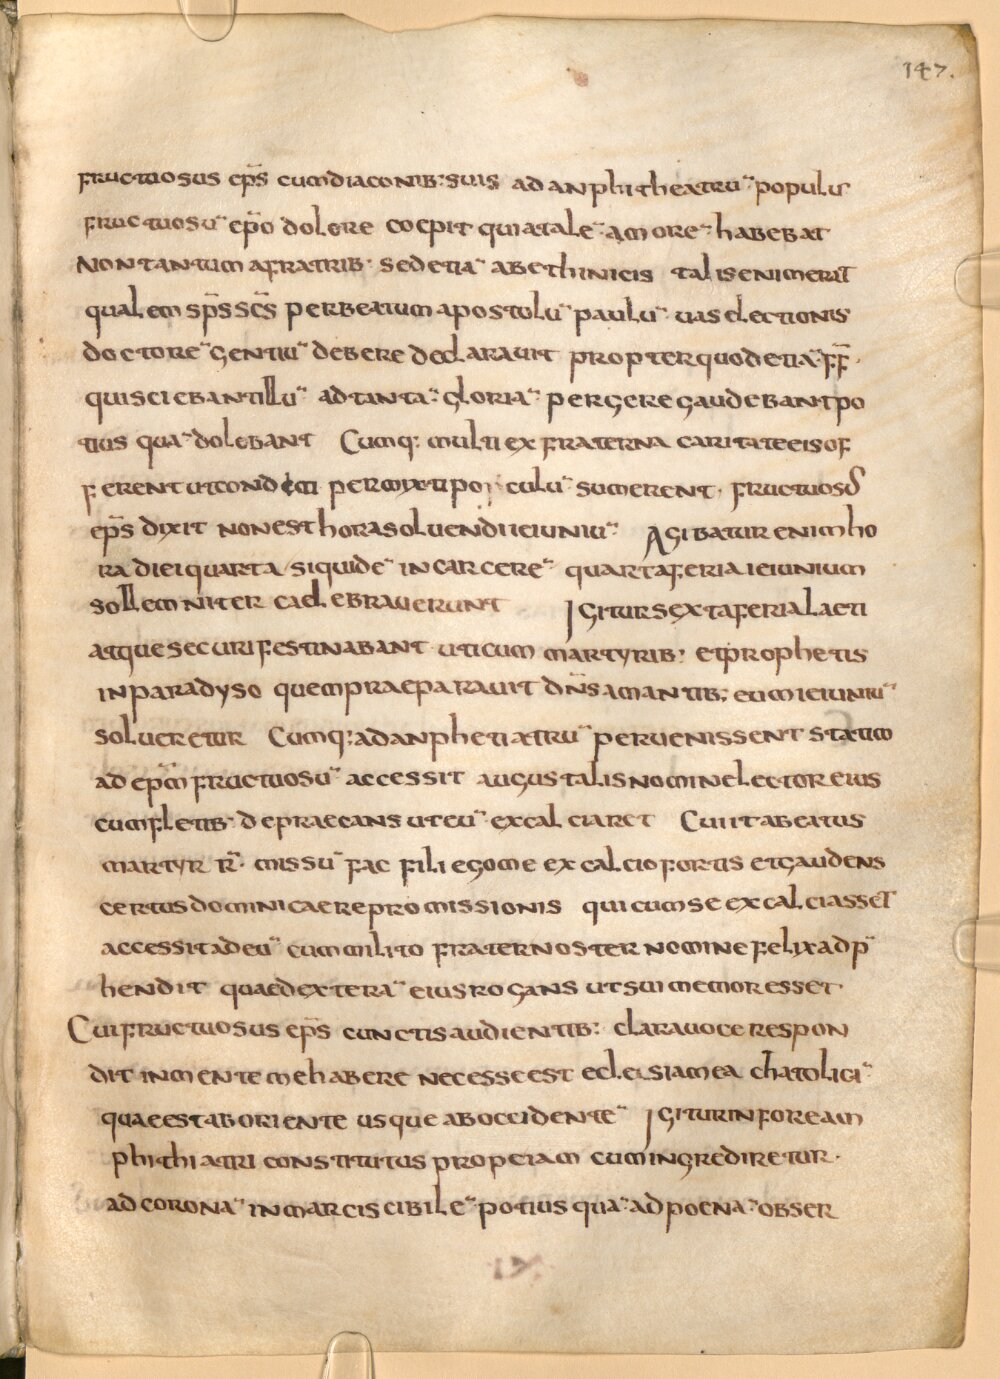 147.
fructuosus ep̅s cumdiaconib: suis adanphitheatru̅ populus
fructuosu̅ ep̅o dolere coepit quiatale̅ amore̅ habebat
nontantum afratrib· sedetia̅ abethinicis talisenimerat
qualem sp̅s sc̅s perbeatum apostolu̅ paulu̅ uas electionis
doctore̅ gentiu̅ debere declarauit propterquodetia̅ f̅f̅·
quisciebantillu̅ adtanta̅ gloria̅ pergeregaudebantpo
tius qua̅ dolebant Cumq: multi ex fraterna caritateeisof
ferent utconditi permixti poculu̅ sumerent· fructuosus
ep̅s dixit nonest horasoluendi ieiuniu̅ Agibatur enimho
ra diei quarta siquide̅ incarcere̅ quartaferia ieiunium
sollemniter caelebrauerunt Igitursextaferia laeti
atquesecuri festinabant uticum martyrib: etprophetis
inparadyso quempraeparauit dn̅s amantib; eum ieiuniu̅
solueretur Cumq: adanphetiatru̅ peruenissent statim
ad ep̅m fructuosu̅ accessit augustalis nomine lector eius
cumfletib· depraecans uteu̅ excalciaret Cui itabeatus
martyr r̅· missu̅ fac fili egome excalcio fortis etgaudens
certus dominicae repromissionis quicumse excalciasset
accessit adeu̅ commilito fraternoster nomine felix adp̅
hendit quaedextera̅ eius rogans utsui memoresset
Cui fructuosus ep̅s cunctis audientib: clarauoce respon
dit inmente mehabere necesseest eclesiamea chatolica̅
quaeest aboriente usque aboccidente̅ Igiturinforeamm
phithiatri constitutus propeiam cumingrediretur·
adcorona̅ inmarciscibile̅ potius qua̅ adpoena̅ obser